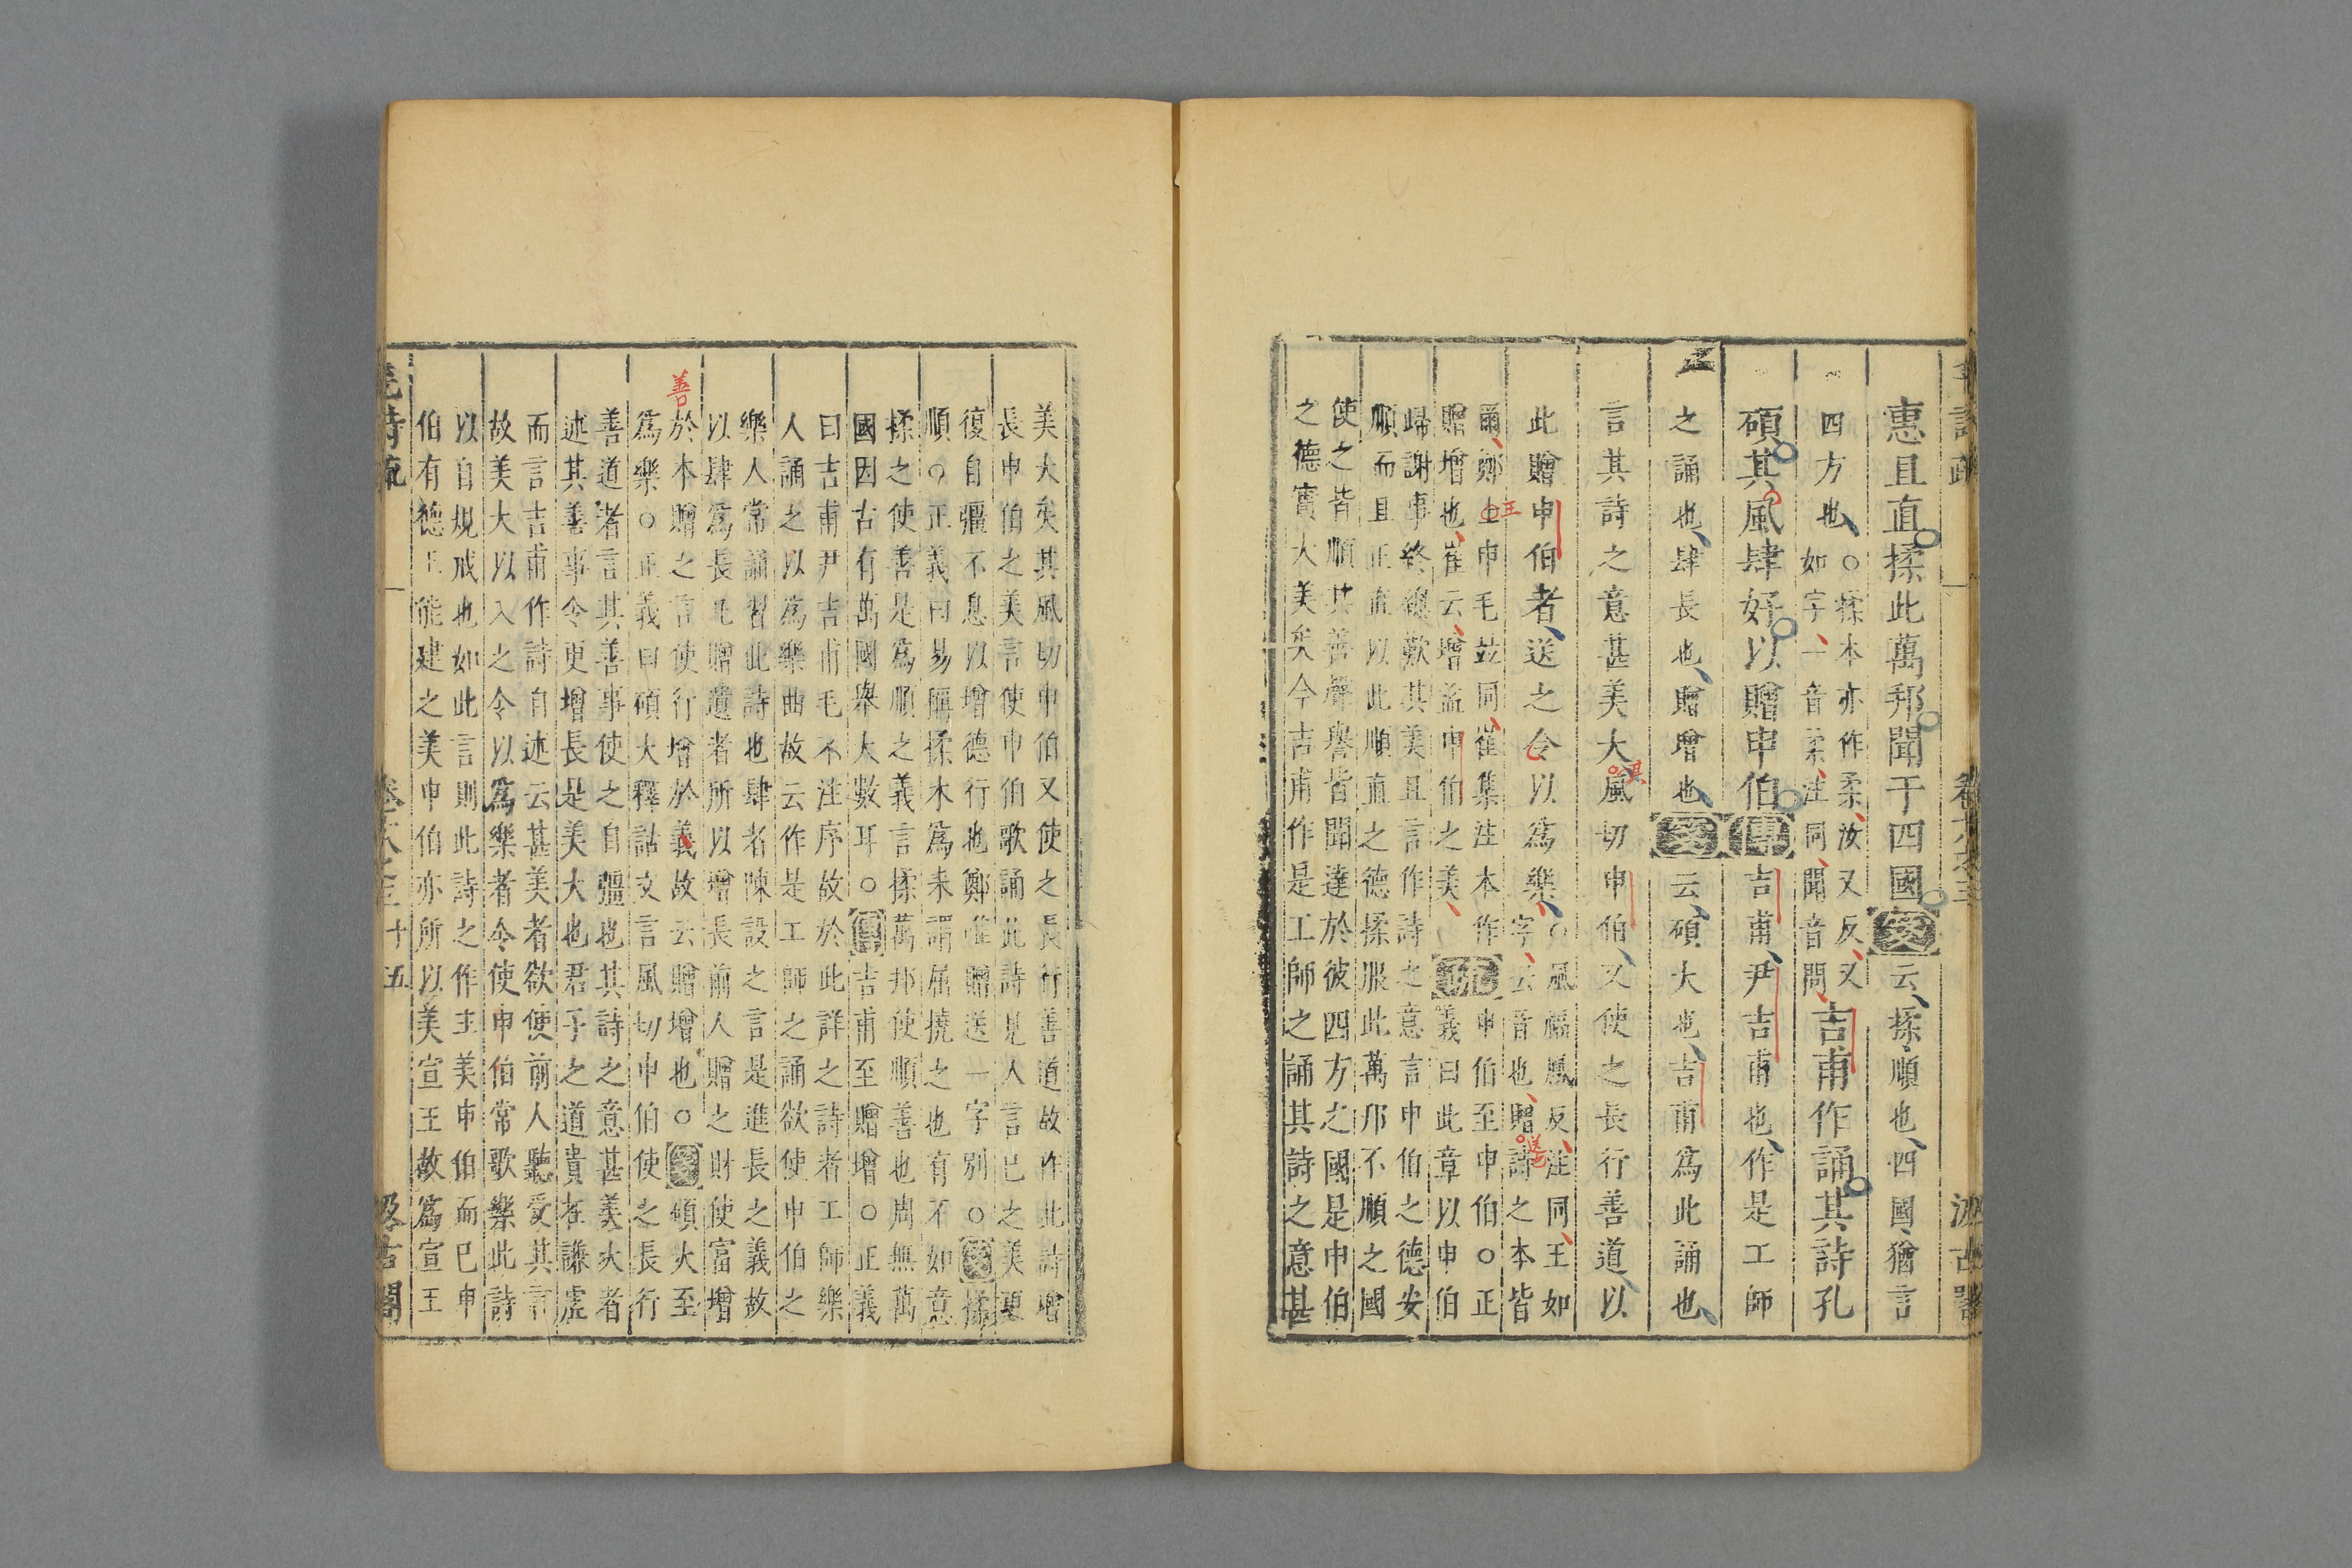 惠且直揉此萬邦聞于四國箋云揉順也四國猶言
四方也○揉本亦作柔汝又反又
如字一音柔注同聞音問
吉甫作誦其詩孔
碩其風肆好以贈申伯傳吉甫尹吉甫也作是工師
之誦也肆長也贈增也箋云碩大也吉甫爲此誦也
言其詩之意甚美大風切申伯又使之長行善道以
其
此贈申伯者送之令以爲樂○風福鳳反注同王如
字云音也贈詩之本皆
送也
爾鄭王申毛並同崔集注本作
王
贈增也崔云增益申伯之美
疏
申伯至申伯○正
義曰此章以申伯
歸謝事終總歎其美且言作詩之意言申伯之德安
順而且正直以此順直之德揉服此萬邦不順之國
使之皆順其善聲譽皆聞達於彼四方之國是申伯
之德實大美矣今吉甫作是工師之誦其詩之意甚
美大矣其風切申伯又使之長行善道故作此詩增
長申伯之美言使申伯歌誦此詩見人言已之美更
復自彊不息以增德行也鄭唯贈送一字別○箋揉
順○正義曰易稱揉木爲耒謂屈撓之也有不如意
揉之使善是爲順之義言揉萬邦使順善也周無萬
國因古有萬國舉大數耳○傳吉甫至贈增○正義
曰吉甫尹吉甫毛不注序故於此詳之詩者工師樂
人誦之以爲樂曲故云作是工師之誦欲使申伯之
樂人常誦習此詩也肆者陳設之言是進長之義故
以肆爲長凡贈遺者所以增長前人贈之財使富增
於本贈之言使行增於義故云贈增也○箋碩大至
善
爲樂○正義曰碩大釋詁文言風切申伯使之長行
善道者言其善事使之自彊也其詩之意甚美大者
述其善事令更增長是美大也君子之道貴在謙虛
而言吉甫作詩自述云甚美者欲使前人聽受其言
故美大以入之令以爲樂者令使申伯常歌樂此詩
以自規戒也如此言則此詩之作主美申伯而已申
伯有德王能建之美申伯亦所以美宣王故爲宣王
毛詩疏 十五 汲古閣